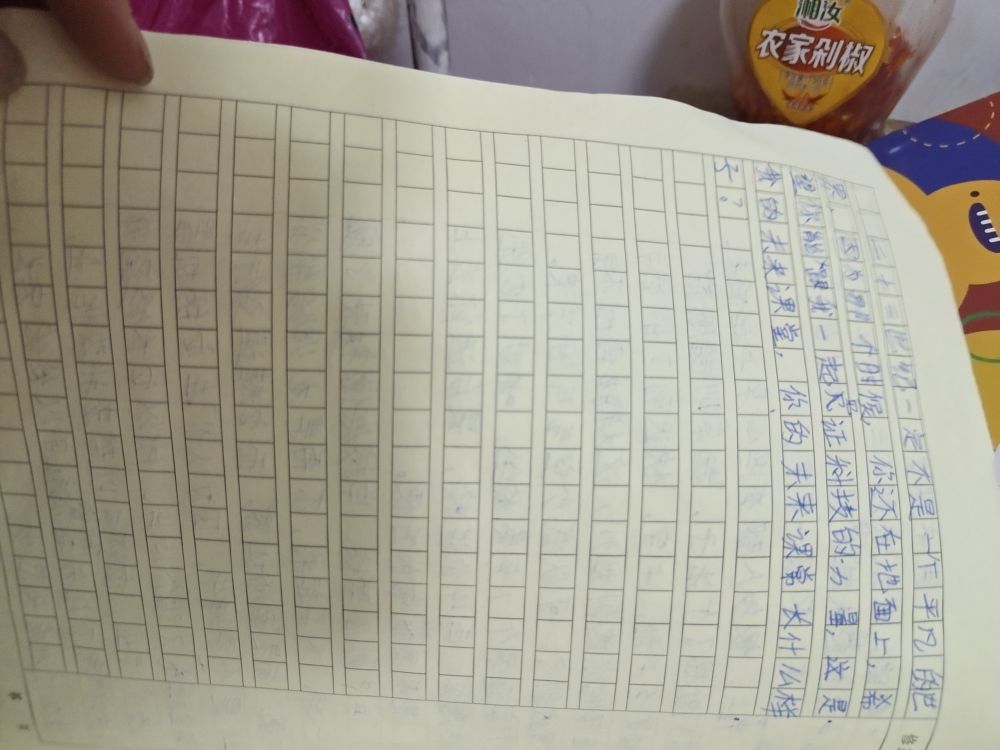 湘汝
农家剁椒
二十三世纪一定不是一个平凡的世
界，因为那个时候，你还在地面上，希
望你能跟我一起见证科技的力量，这是
我的未来课堂，你的未来课常长什么样
子？